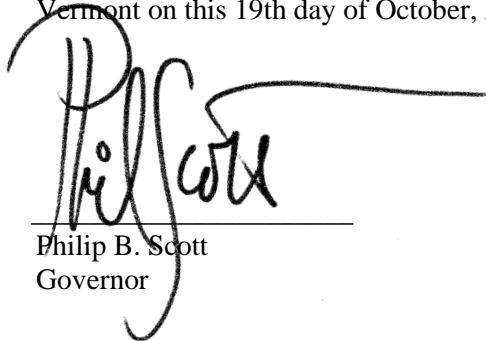 Vermont on this 19th day of October,
Phil Scott
Philip B. Scott
Governor